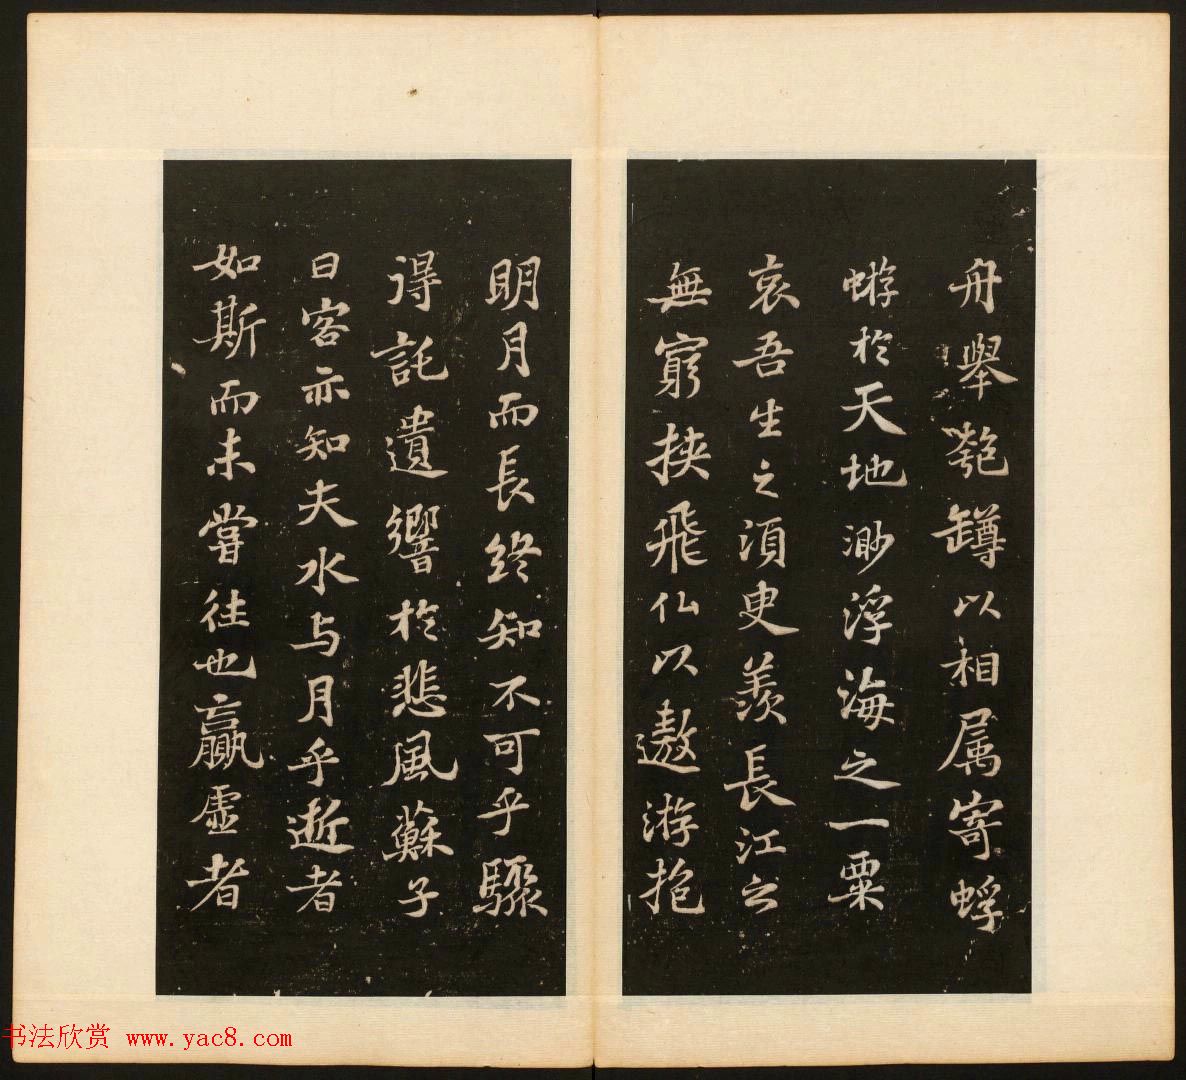 舟舉匏罇以相属寄蜉
蝣於天地渺浮海之一粟
哀吾生之須臾羨長江之
無窮挾飛仙以遨游抱
明月而長終知不可乎驟
得託遺響於悲風蘇子
曰客亦知夫水与月乎逝者
如斯而未嘗往也贏虛者
书法欣赏 www.yac8.com